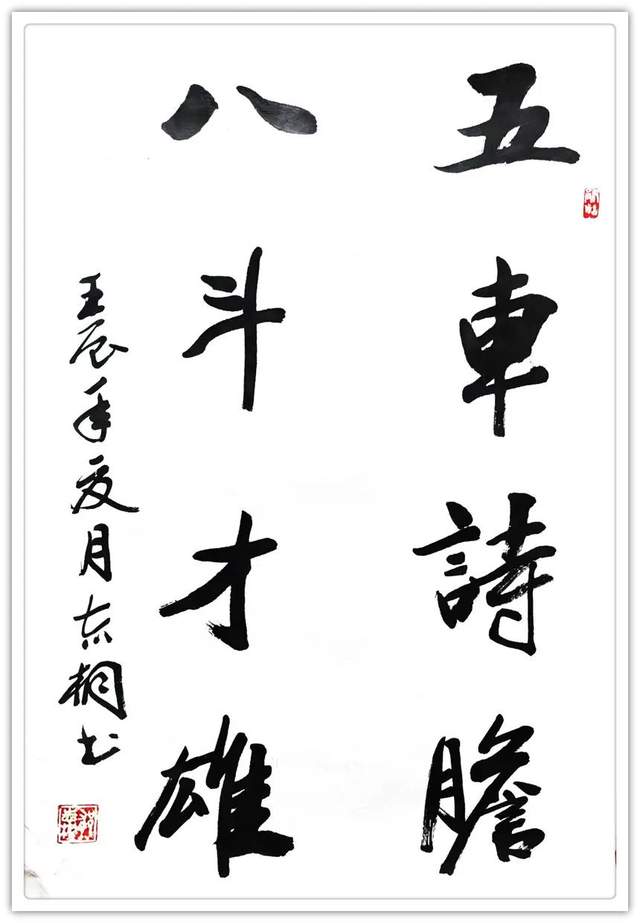 五車詩膽
八斗才雄
壬辰年夏月桐书